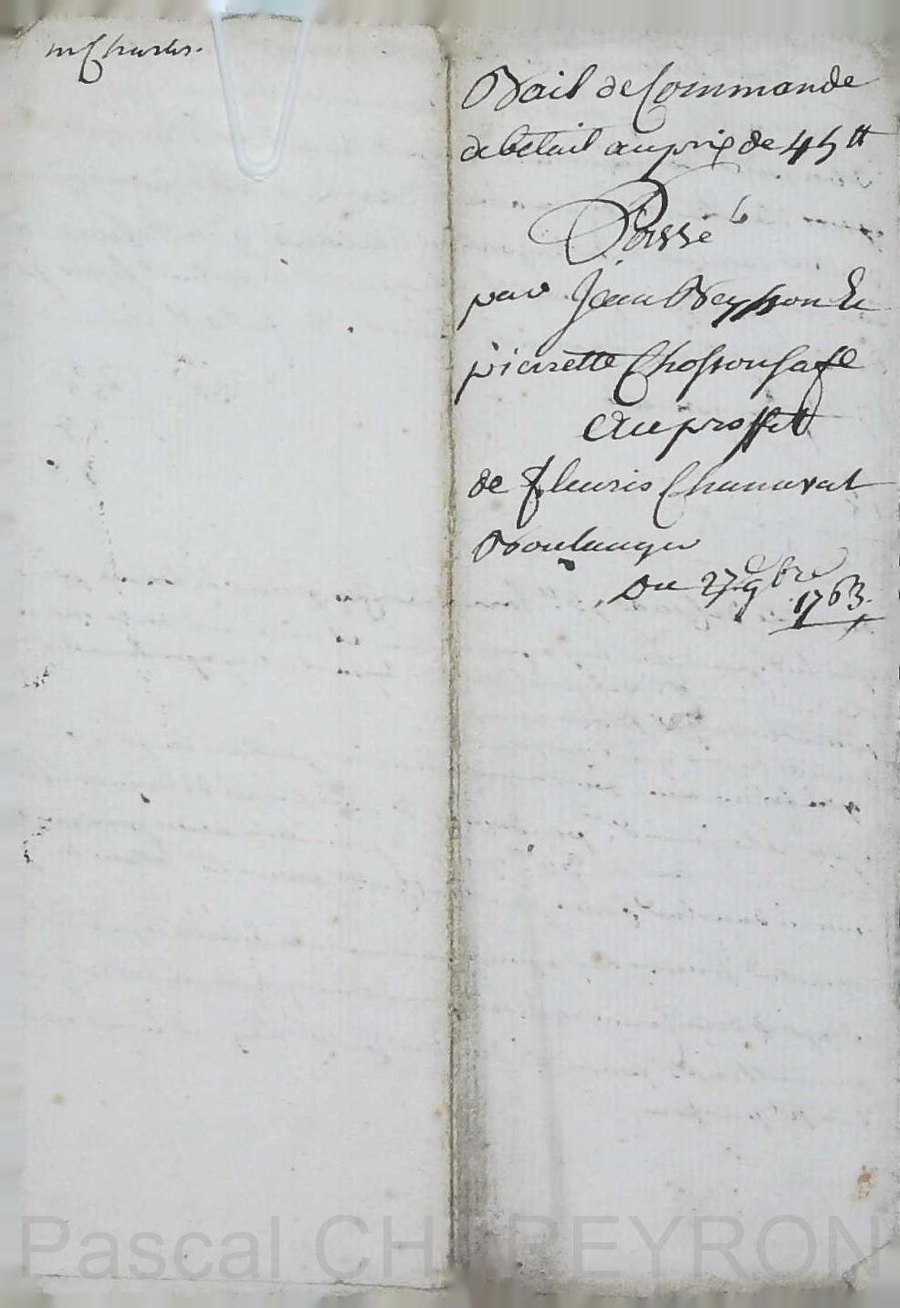 m Charles.
Bail de Commande
de betail au prix de 45 tt
Passé
par Jean Beysson Et
pierrette Chosson sa fe
Au proffit
de fleuris Chanavat
Boulanger
Du 27e 9bre
1763.
Pascal CHAPEYRON